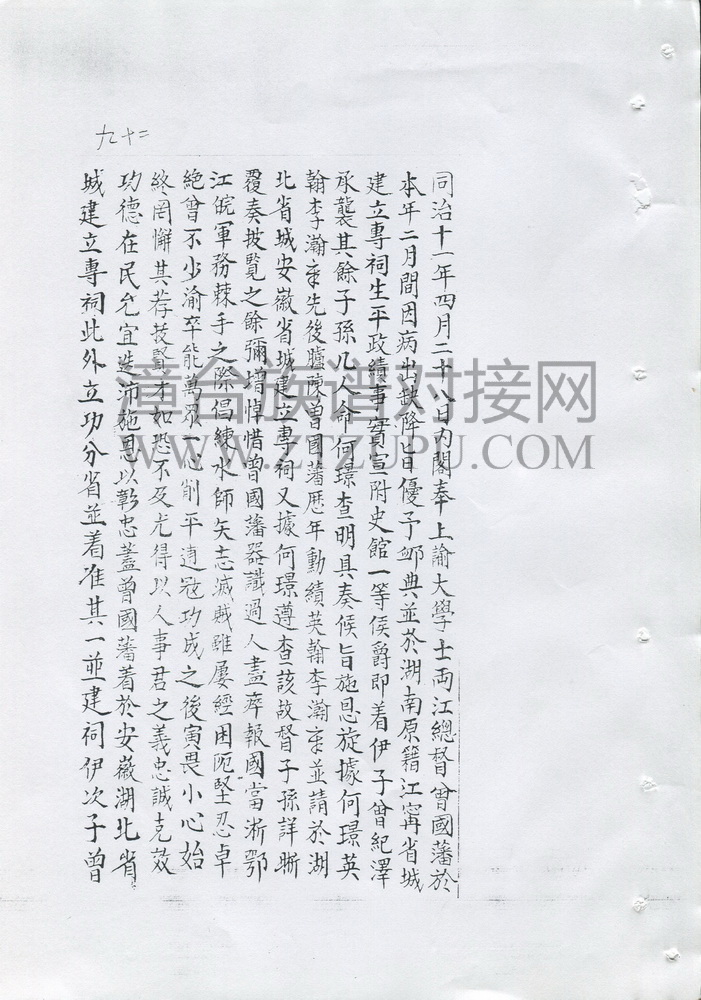 九十二
同治十一年四月二十八日內閣奉上諭大學士両江總督曾國藩於
本年二月間因病出缺降旨優予卹典並於湖南原籍江甯省城
建立專祠生平政績事實宣附史館一等侯爵即着伊子曾紀澤
承襲其餘子孫几人命何璟查明具奏候旨施恩旋據何璟英
翰李瀚章先後臚陳曾國藩歷年勳績英翰李瀚章並請於湖
北省城安徽省城建立專祠又據何璟遵查該故督子孫詳晰
覆奏披覽之餘彌增悼惜曾國藩器識過人盡瘁報國當淅鄂
江皖軍務棘手之際倡練水師矢志滅賊雖屢經困阨堅忍卓
絕曾不少渝卒能萬眾一心削平逋寇功成之後寅畏小心始
終罔懈其荐拔賢才如恐不及尤得以人事君之義忠誠克效
功德在民允宜迭沛施恩以彰忠藎曾國藩着於安徽湖北省
城建立專祠此外立功分省並着准其一並建祠伊次子曾
漳台族谱对接网
WWW.ZTZUPU.COM